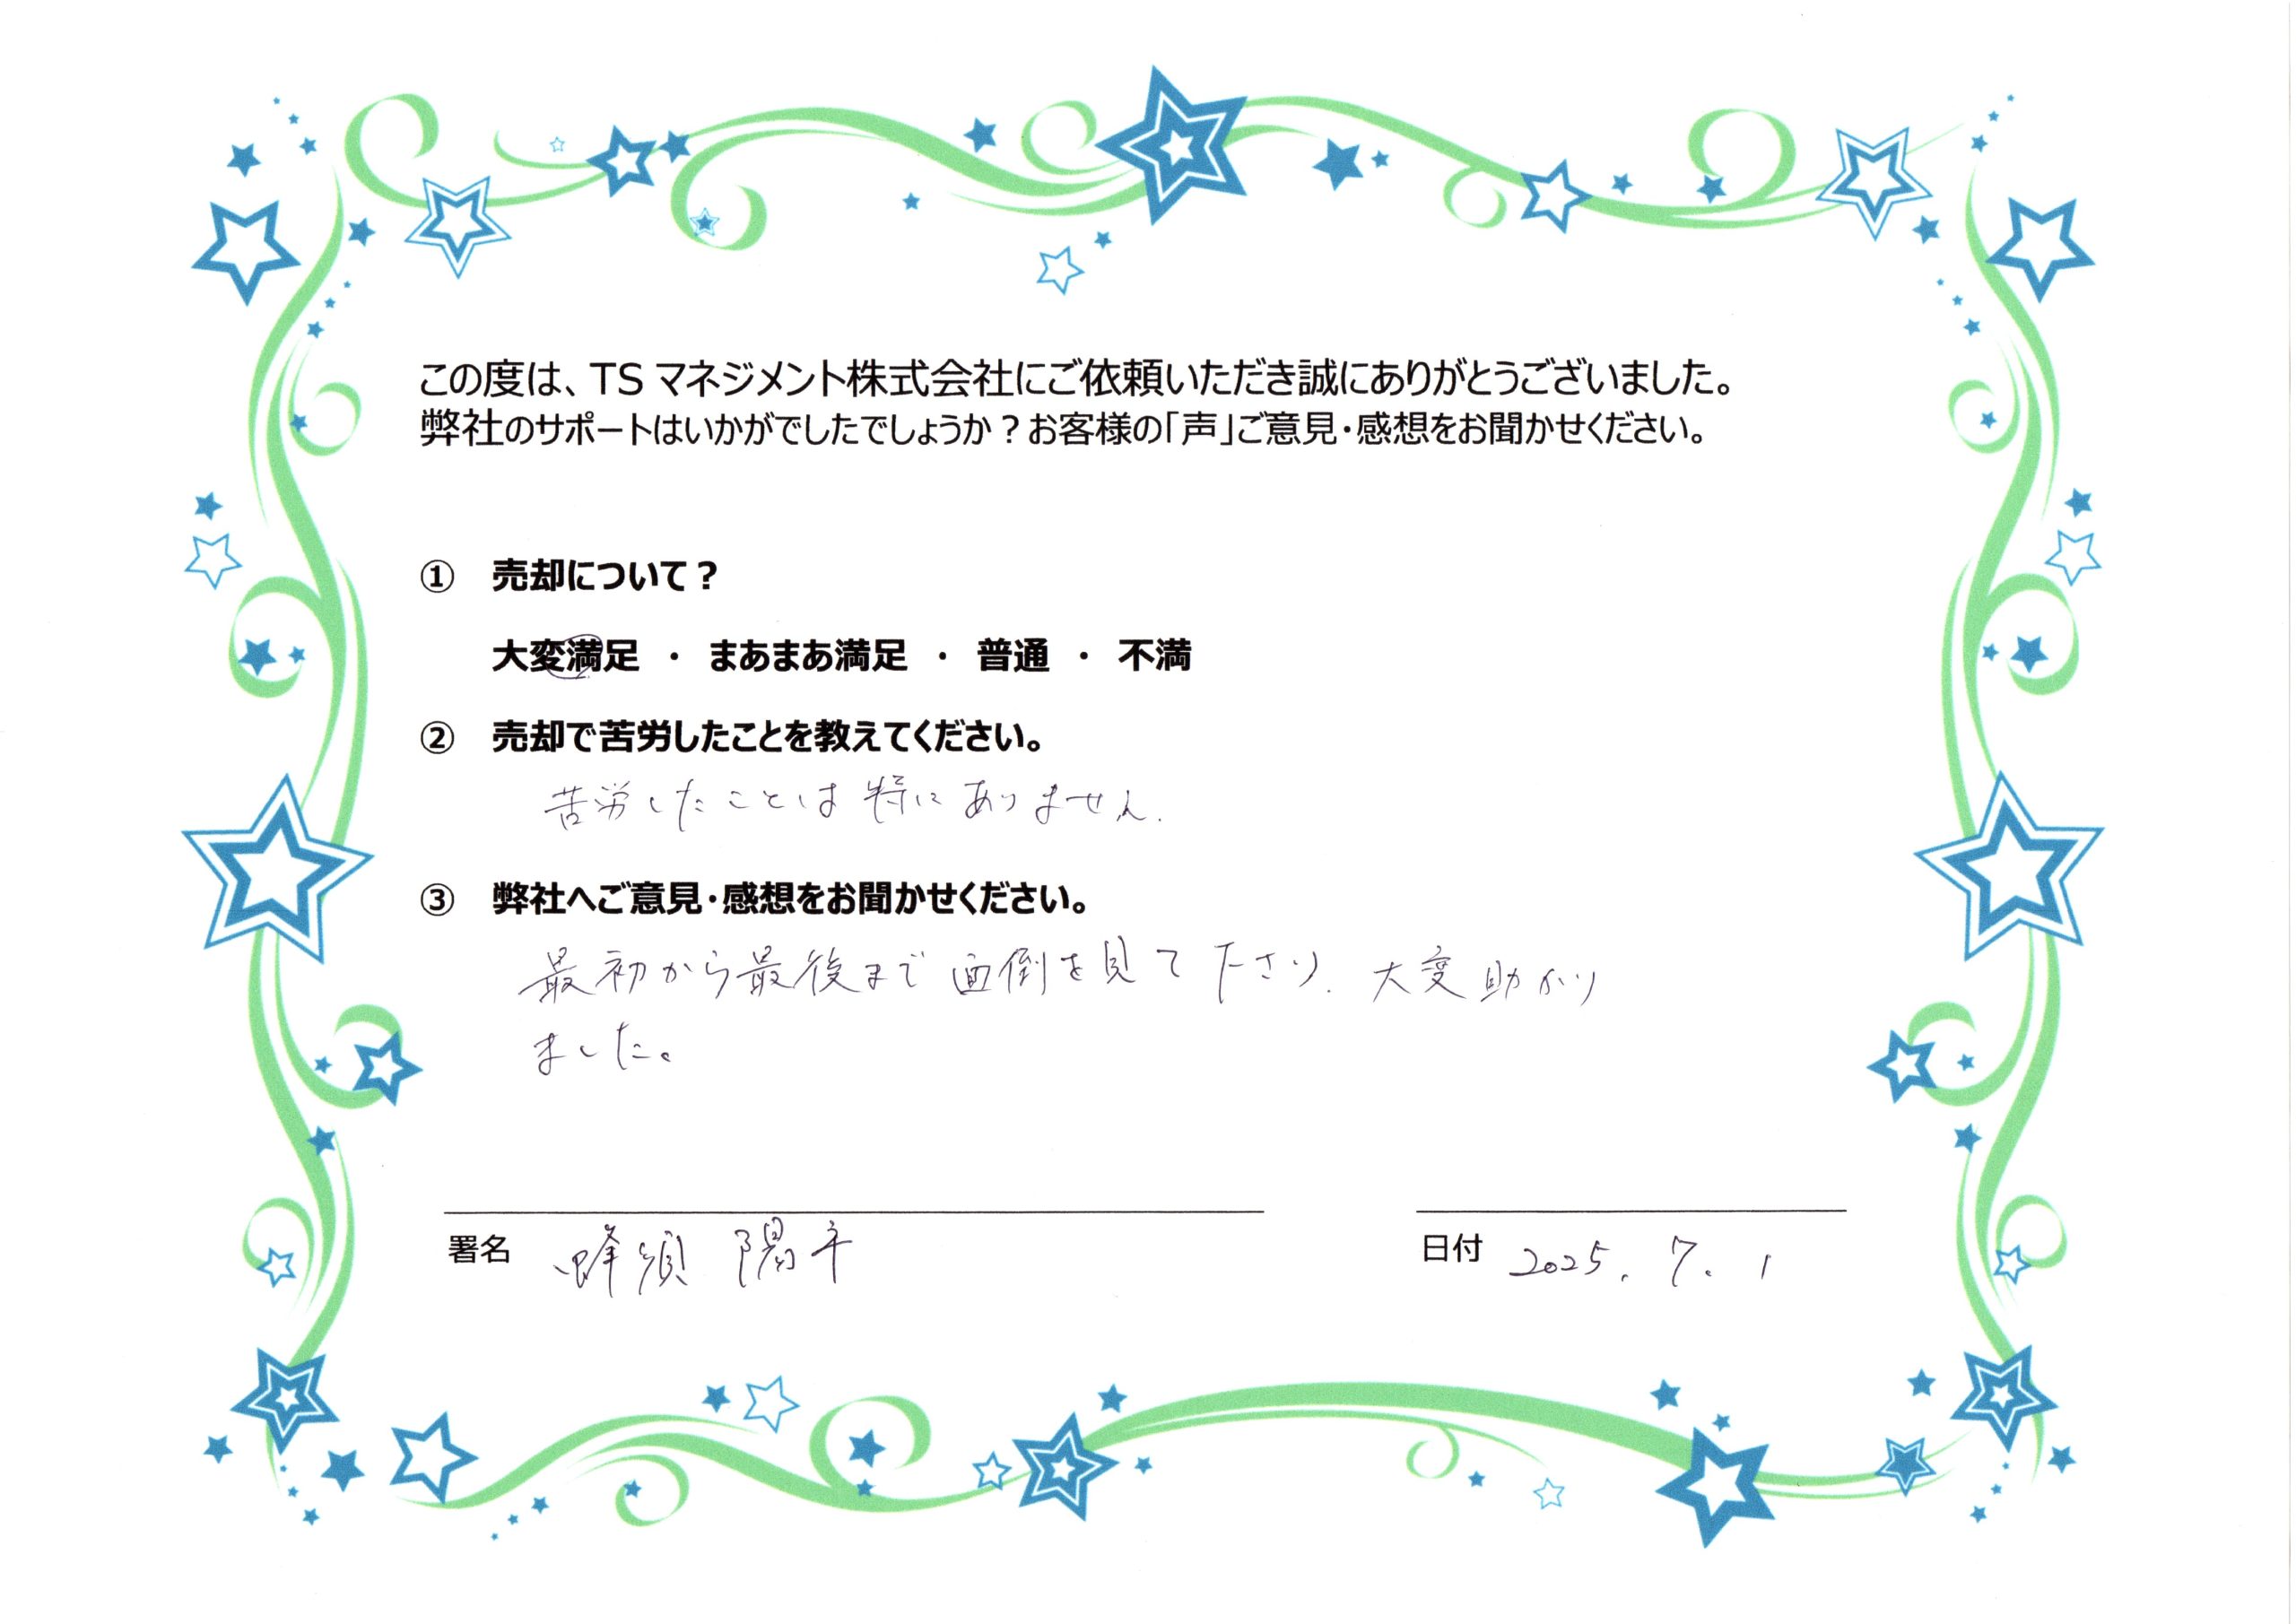 この度は、TSマネジメント株式会社にご依頼いただき誠にありがとうございました。
弊社のサポートはいかがでしたでしょうか？お客様の「声」ご意見・感想をお聞かせください。
① 売却について？
大変満足 ・ まあまあ満足 ・ 普通 ・ 不満
② 売却で苦労したことを教えてください。
苦労したことは特にありません.
③ 弊社へご意見・感想をお聞かせください。
最初から最後まで面倒を見て下さり、大変助かり
ました。
署名 蜂須 陽平
日付 2025. 7. 1